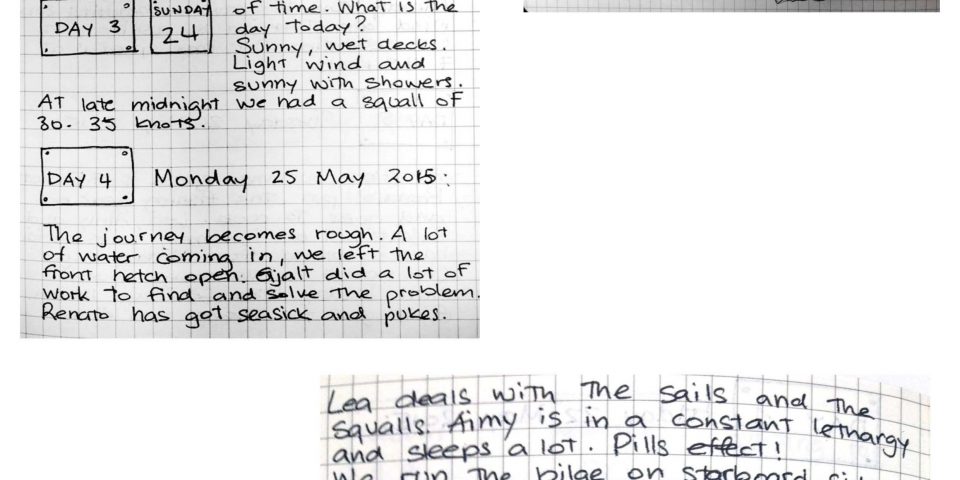 DAY 3
SUNDAY
24
of time. What is the
day today?
Sunny, wet decks.
Light wind and
sunny with showers.
AT late midnight we had a squall of
30. 35 knots.
DAY 4
Monday 25 May 2015:
The journey becomes rough. A lot
of water coming in, we left the
front hetch open. Gjalt did a lot of
work to find and solve the problem.
Renato has got seasick and pukes.
Lea deals with the sails and the
squalls. Aimy is in a constant lethargy
and sleeps a lot. Pills effect!
We run the bilge on starboard